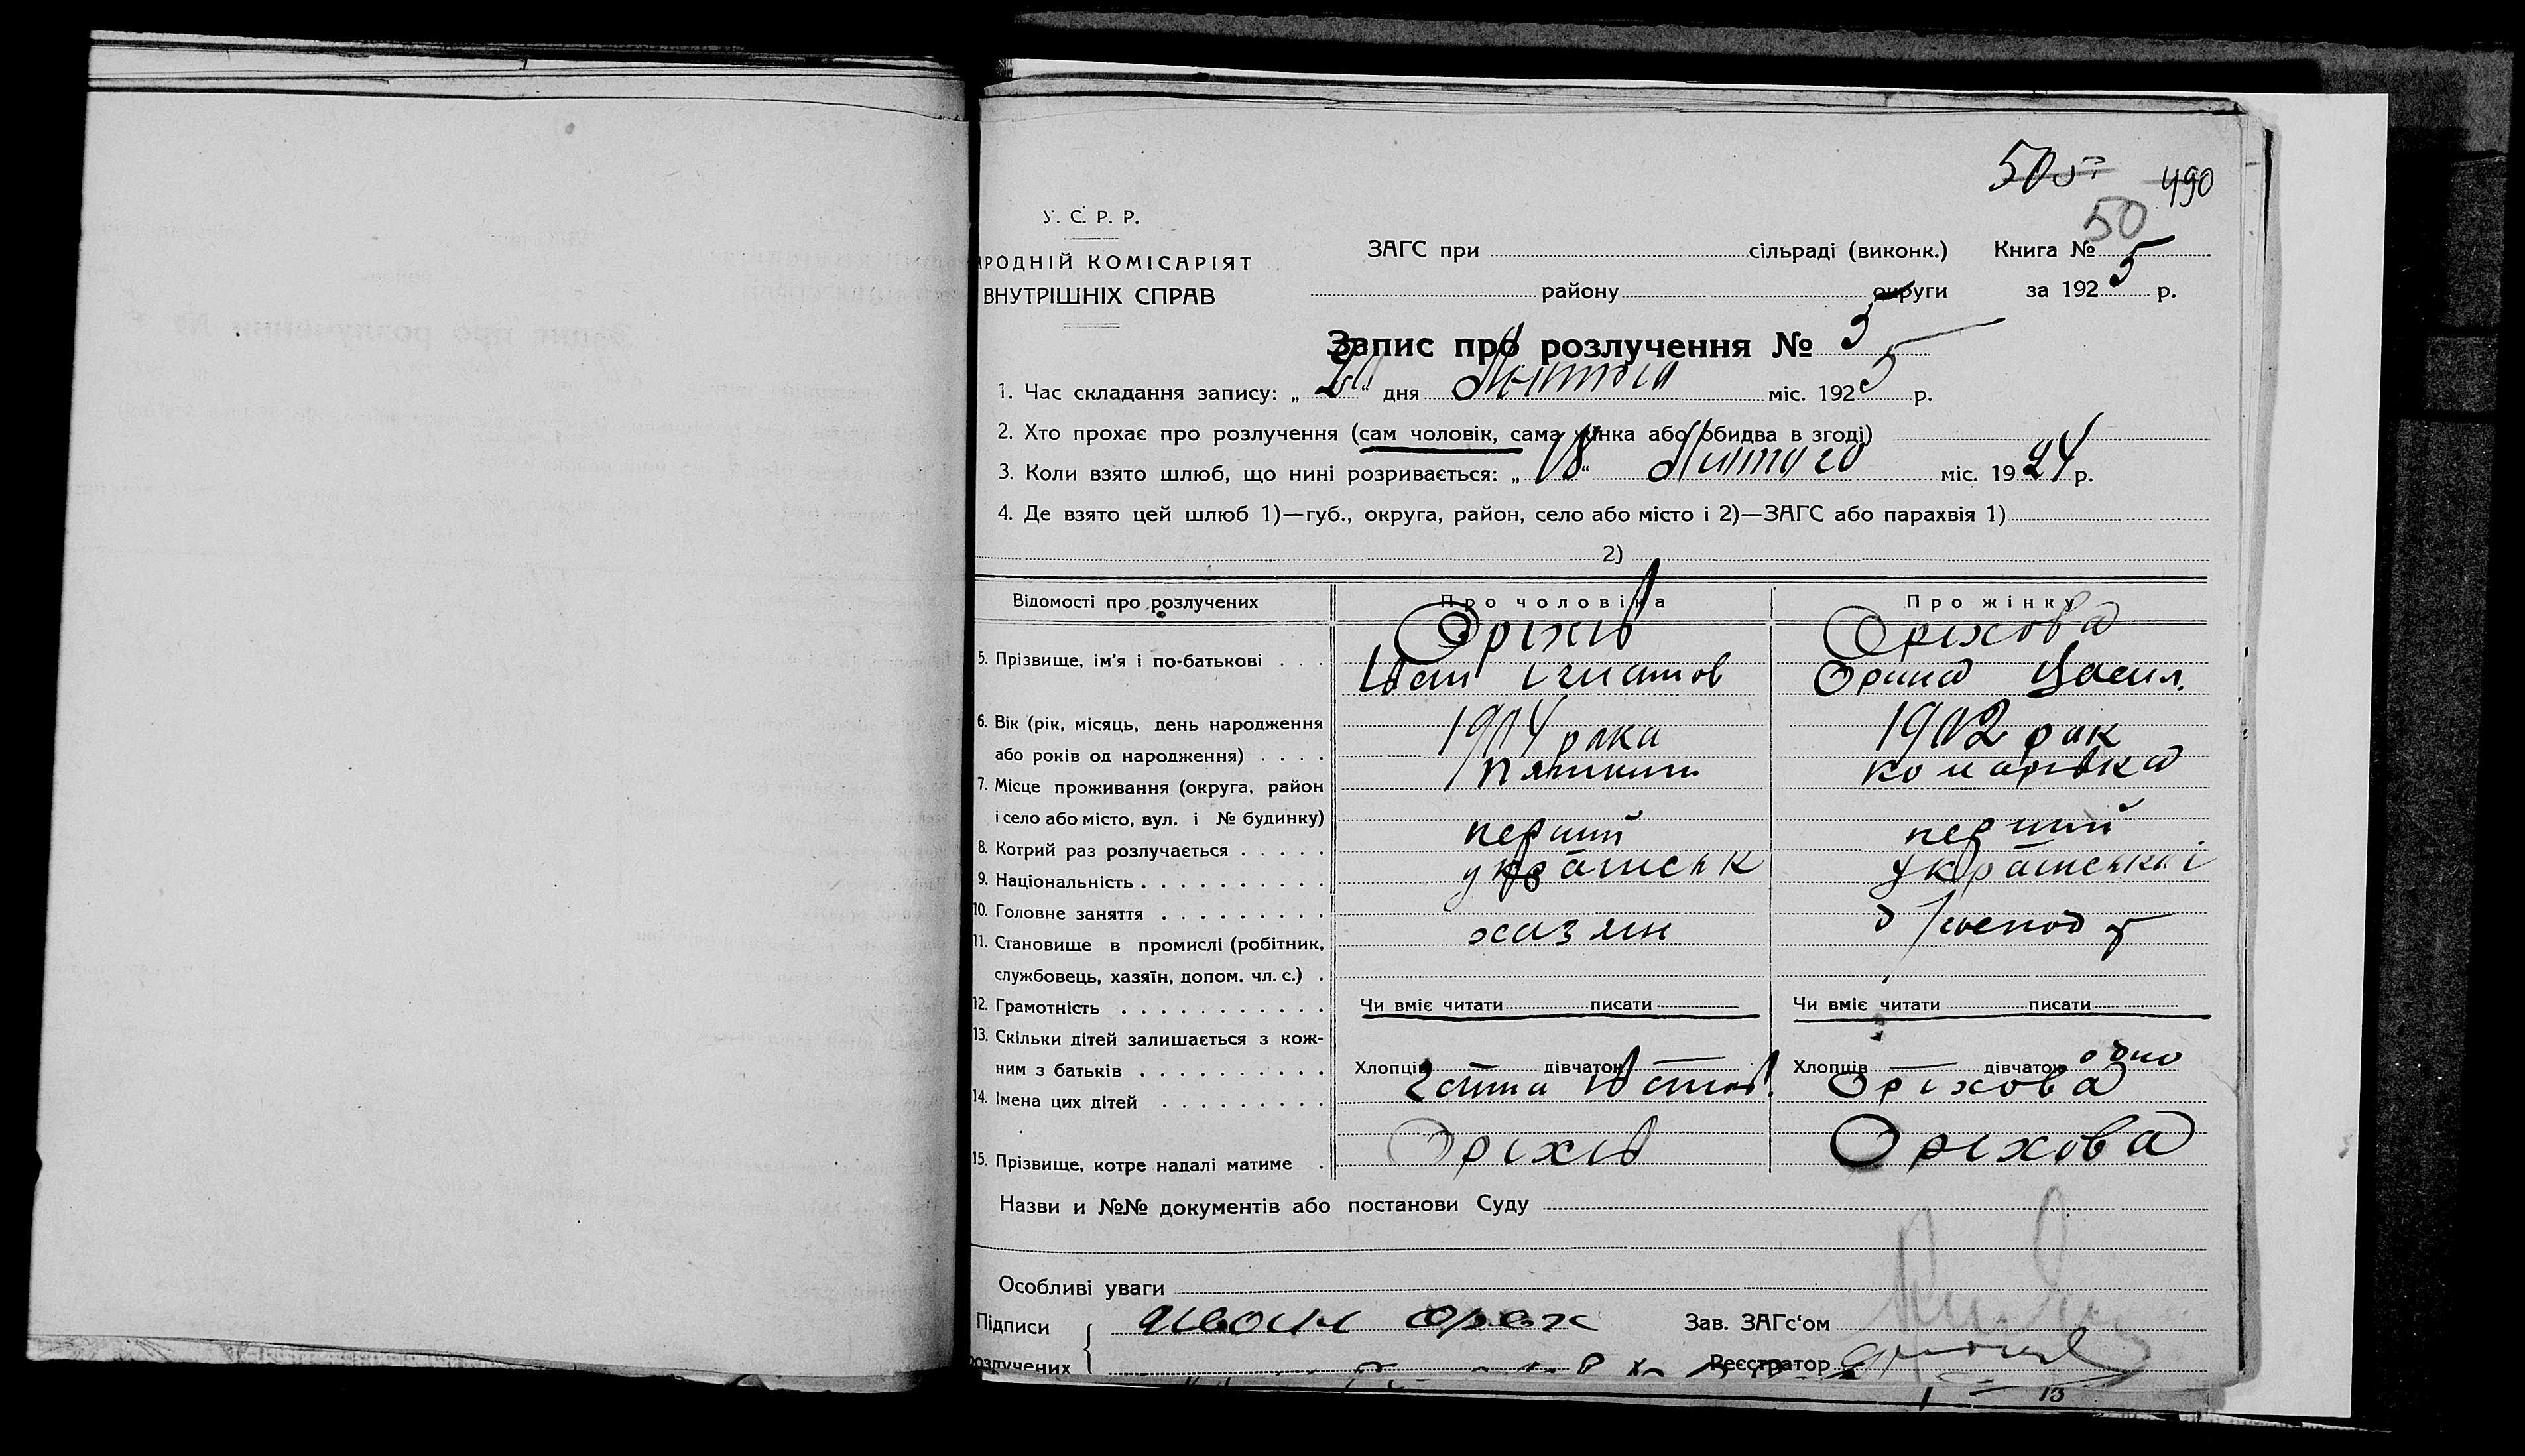 490
50
У. С. Р. Р.
ЗАГС при сільраді (виконк.) Книга № 5
РОДНІЙ КОМІСАРІЯТ
ВНУТРІШНІХ СПРАВ
району округи за 1925 р.
Запис про розлучення № 5
1. Час складання запису: „20“ дня Лютого міс. 1925 р.
2. Хто прохає про розлучення (сам чоловік, сама жінка або обидва в згоді)
3. Коли взято шлюб, що нині розривається: „18“ Лютого міс. 1924 р.
4. Де взято цей шлюб 1)—губ., округа, район, село або місто і 2)—ЗАГС або парахвія 1)
2)
Відомості про розлучених Про чоловіка Про жінку
Оріхів Оріхова
5. Прізвище, ім'я і по-батькові
Іван Ігнатов Орина Васил.
6. Вік (рік, місяць, день народження 1904 рока 1902 рок
або років од народження)
7. Місце проживання (округа, район комарівка
і село або місто, вул. і № будинку)
8. Котрий раз розлучається перший перший
9. Національність українськ українськаі
10. Головне заняття
11. Становище в промислі (робітник, хазяін
службовець, хазяїн, допом. чл. с.)
12. Грамотність Чи вміє читати писати Чи вміє читати писати
13. Скільки дітей залишається з кож-
ним з батьків Хлопців — дівчаток — Хлопців — дівчаток одно
14. Імена цих дітей Оріхова
15. Прізвище, котре надалі матиме Оріхів Оріхова
Назви и №№ документів або постанови Суду
Особливі уваги
Підписи Зав. ЗАГс'ом
розлучених Реєстратор
13